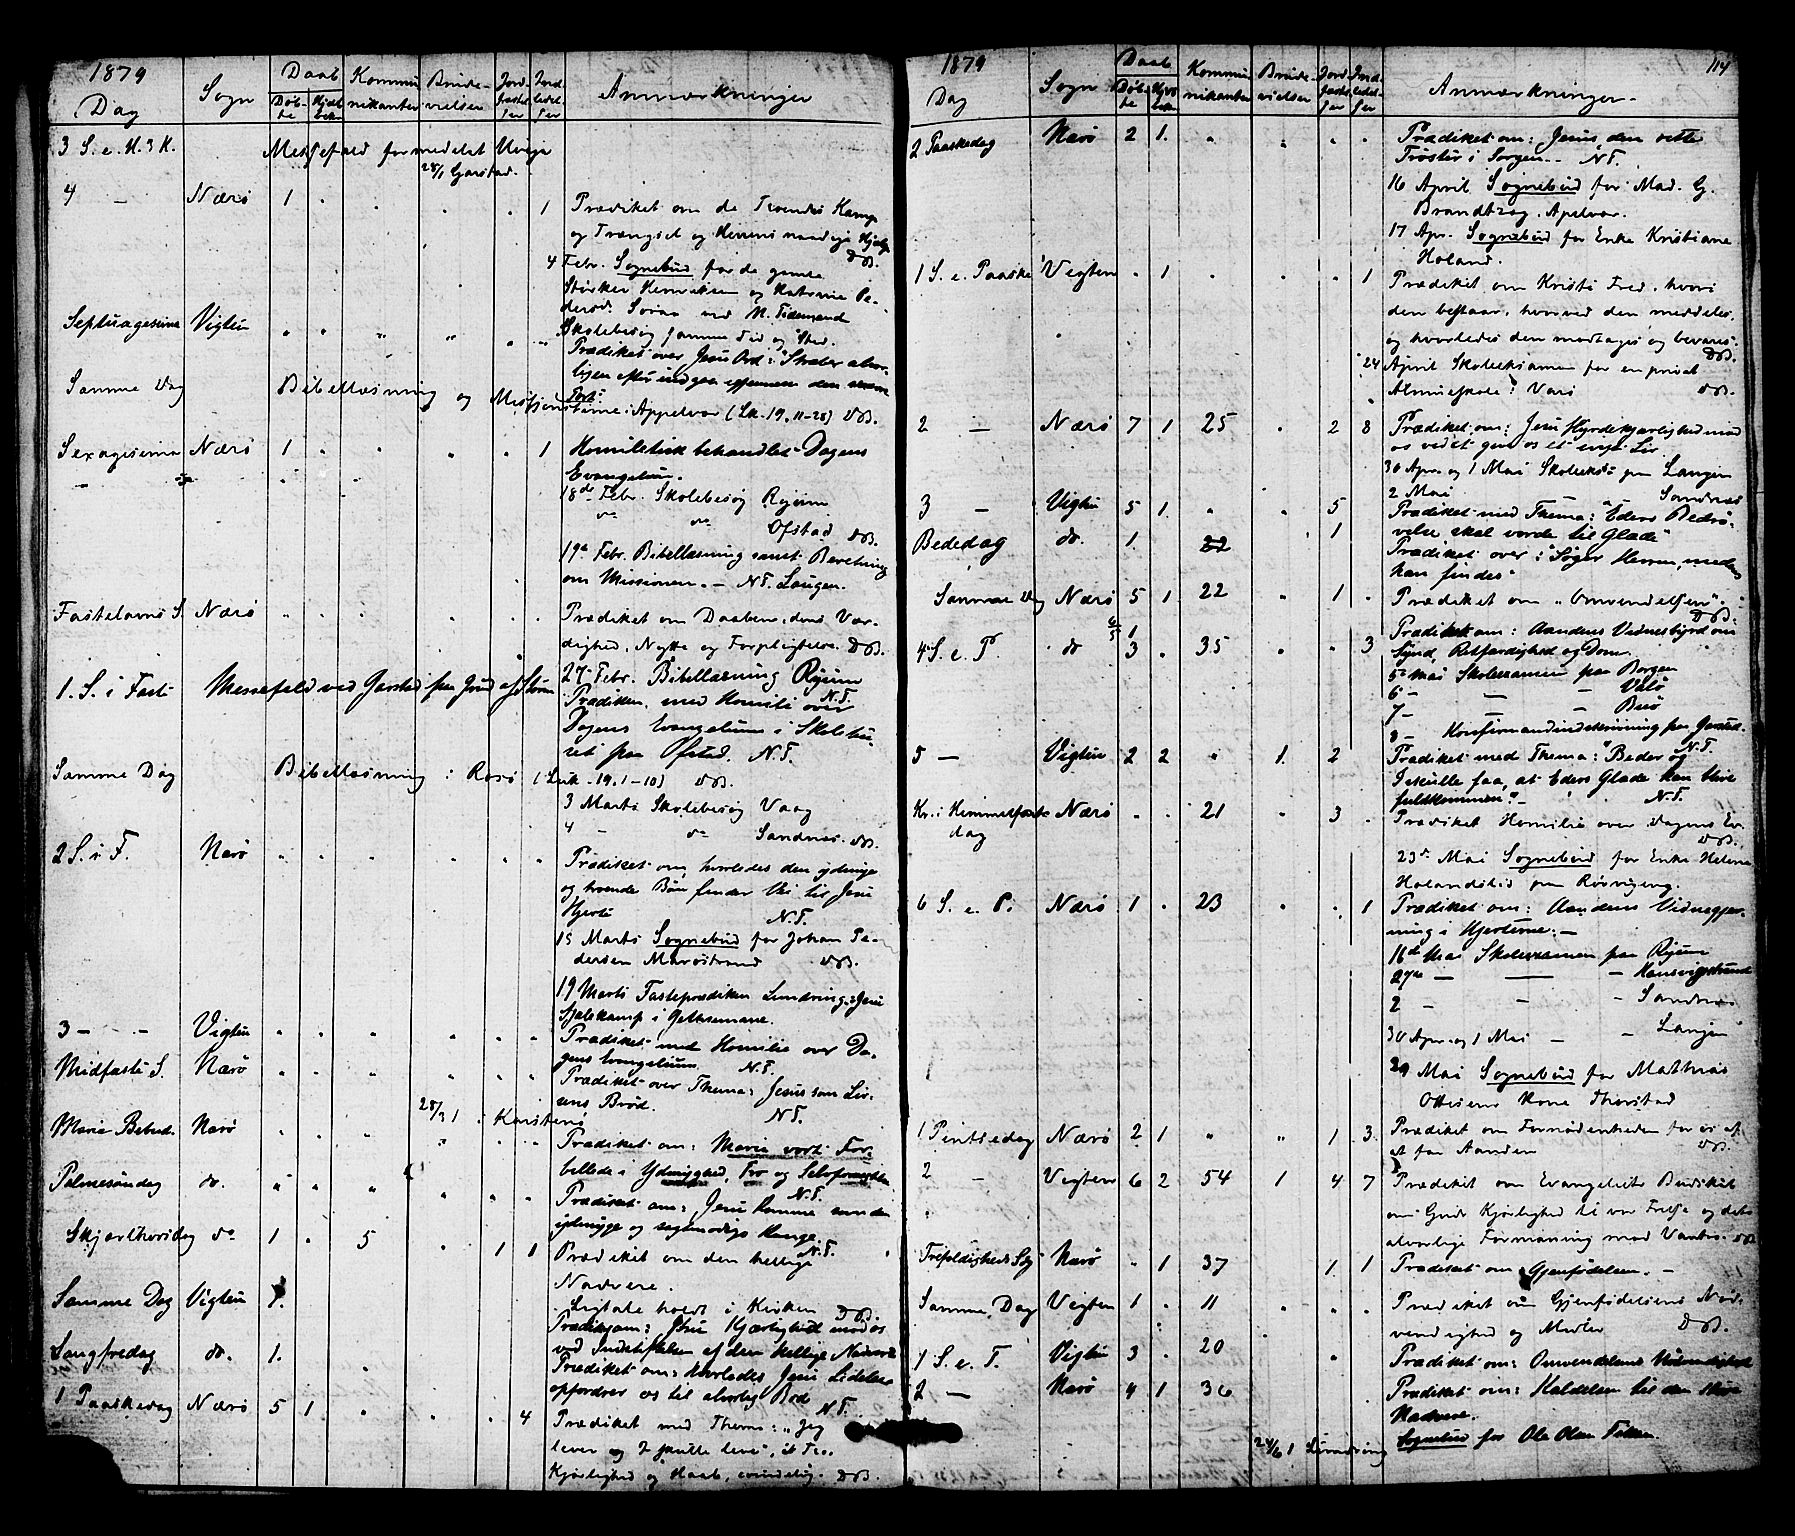 1879
Dag
Sogn
Daab
Døb-
te
Hjdb
Kommu
nikanter
Brude-
vielser
Jord
fæstel
ser
Anmærkninger
3 S. e. H. 3 K. Messefald formedelst Uveir
28/1 Garstad.
4 — Nærø 1 " " " " 1 Prædiket om de Troendes Kamp
og Trængsel og Herrens naadige Hjælp
DB.
4 Febr. Sognebud for de gamle
Størker Henriksen og Katrine Pe-
dersd. Soraa ved N. Fidemand
Septuagesima Vigten " " " " " " Skolebesøg samme Tid og Sted.
Prædiket over Jesu Ord: "Stræber alvor-
ligen efter indgaa igjennem den snevre
Port."
Samme Dag Bibellæsning og Missionstime: Appelvær (Luk. 19, 11-28) DB.
Sexagesima Nærø 1 " " " " 1 Homiletisk behandlet Dagens
Evangelium.
18de Febr. Skolebesøg Ryum
do do Ofstad DB.
19de Febr. Bibellæsning samt Beretning
om Missionen. — N.T. Langen.
Fastelavns S. Nærø " " " " " " Prædiket om Daaben, dens Vær-
dighed, Nytte og Forpligtelse. DB.
27 Febr. Bibellæsning Ryum
N.T.
1. S. i Faste Messefald ved Garstad paa Grund af Storm
Prædiken med Homili over
Dagens Evangelium i Skolehu-
set paa Ofstad. N.T.
Samme Dag Bibellæsning i Rosø (Luk. 19. 1-10) DB.
3 Marts Skolebesøg Vaag
4 — do Sandnes. DB.
2 S. i F. Nærø " " " " " " Prædiket om, hvorledes den ydmyge
og troende Bøn finder Vei til Jesu
Hjerte N.T.
15 Marts Sognebud for Johan Pe-
dersen Marøstrand DB.
19 Marts Fasteprædiken Lundring: Jesu
Sjælekamp i Gethsemane.
3 — — Vigten " " " " " " Prædiket med Homilie over Da-
gens Evangelium N.T.
Midfaste S. Nærø " " " " " " Prædiket over Thema: Jesus som Liv-
sens Brød. N.T.
28/3 1 Karstenø
Maria Bebud. Nærø " " " " " " Prædiket om: Maria vort For-
billede i Ydmyghed, Tro og Selvfornegtelse
N.T.
Palmesøndag do. " " " " " " Prædiket om: Jesu Komme som den
ydmyge og sagtmodige Konge.
N.T.
Skjærthorsdag do 1 " 5 " 1 1 Prædiket om den hellige
Nadvere.
Ligtale holdt i Kirken DB.
Samme Dag Vigten 1. Prædik. om: Jesu Kjærlighed mod os
ved Indstiftelsen af den hellige Nadvere
Langfredag do. 1. Prædiket om: Hvorledes Jesu Lidelse
opfordrer os til alvorlig Bod
N.T.
1 Paaskedag Nærø 5 1 " " " 4 Prædiket med Thema: "Jeg
lever og I skulle leve", i Tro,
Kjærlighed og Haab, evindelig. DB.
1879
114
Dag
Sogn
Daab
Døb-
te
Kommu
nikanter
Brude-
vielser
Jord
fæst
ser
Anmærkninger
2 Paaskedag Nærø 2 1. " " " " Prædiket om: Jesus, den rette
Trøster i Sorgen. — N.T.
16 April Sognebud for Mad. G.
Brandtzæg. Apelvær.
17 Apr. Sognebud for Enke Kristiane
Holand.
1 S. e. Paaske Vigten " 1 " " " 1 Prædiket om Kristi Fred, hvori
den bestaar, hvorved den meddeles,
og hvorledes den modtages og bevares.
DB.
24 April Skoleeksamen for en privat
Almueskole i Varø DB.
2 — Nærø 7 1 25 " 2 8 Prædiket om: Jesu Hyrdekjærlighed mod
os ved at give os et evigt Liv.
30 Apr. og 1 Mai Skoleeks. paa Langen
2 Mai — Sandnæs
3 — Vigten 5 1. " " 5 Prædiket med Thema: "Eders Bedrø-
velse skal vorde til Glæde"
Bededag do. 1. 22 1 Prædiket over: "Søger Herren, medens
han findes"
Samme Dag Nærø 5 1 22 " 1 " Prædiket om "Omvendelsen".
DB.
6/5 1
4 S. e. P. do 3 " 35 " " 3 Prædiket om: Aandens Vidnesbyrd om
Synd, Retfærdighed og Dom.
5te Mai Skoleexamen paa Borgen
6 — — — Valø
7 — — — Burø
8 — Konfirmandindskrivning paa Garstad.
N.T.
5 — Vigten 2 2 " 1. 2 Prædiket med Thema: "Beder og
I skulle faa, at Eders Glæde kan blive
fuldkommen". — N.T.
Kr. Himmelfarts Nærø " " 21 " 3 " Prædiket Homilie over Dagens Ev.
dag
DB.
23de Mai Sognebud for Enke Helena
Holandslid paa Rørvigeng.
6 S. e. P. Nærø 1 " 23 " " 1 Prædiket om: Aandens Vidnegjer-
ning i Hjerterne. —
16de Mai Skoleexamen paa Ryum
27de — — — Hansvigstrand
2 — — — Sandnæs
30 Apr. og 1 Mai — — Langen
29 Mai Sognebud for Mathias
Ottesens Kone Thorstad
1 Pintsedag Nærø 2 1 " " 1 3 Prædiket om Fornødenheden for os af
at faa Aanden DB.
2 — Vigten 6 2 54 1 4 7 Prædiket om Evangeliets Budskab
om Guds Kjærlighed til vor Frelse og dets
alvorlige Formaning mod Vantro. DB
Trefoldigheds Sg Nærø " 1 37 1 1 Prædiket om Gjenfødelsen. —
Samme Dag Vigten 1 " 11 " " " Prædiket om Gjenfødelsens Nød-
vendighed og Midler DB.
1 S. e. T. Vigten 3 " 20 " Prædiket om: Omvendelsens Nødvendighed
2 — Nærø 4 1 36 " Prædiket om: Kaldelsen til den store
Nadvere.
24/6 1 Lundring Sognebud for Ole Olsen